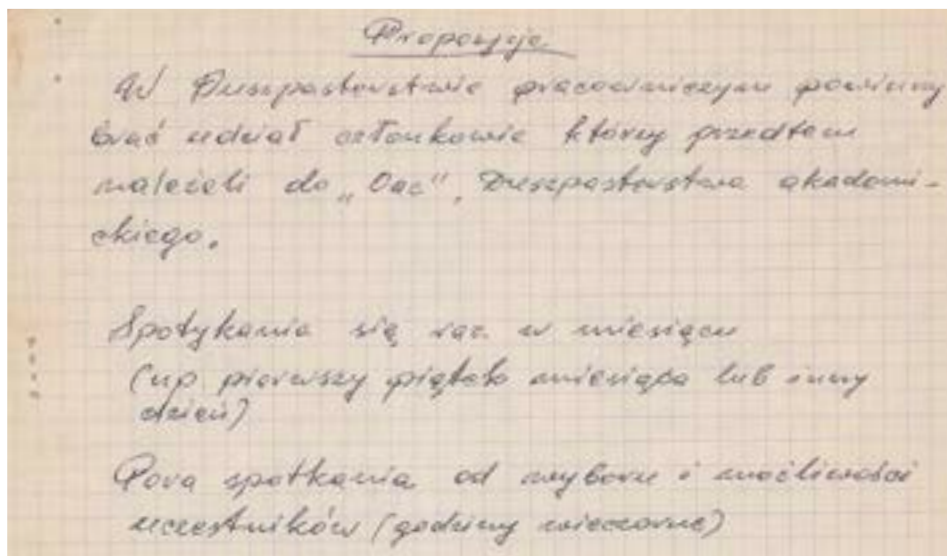 Propozycje
W Duszpasterstwie pracowniczym powinny
brać udział członkowie którzy przedtem
należeli do „Oac", Duszpasterstwa akademi-
ckiego.
Spotykania się raz w miesiącu
(np pierwszy piątek miesiąca lub inny
dzień)
Pora spotkania od wyboru i możliwości
uczestników (godziny wieczorne)